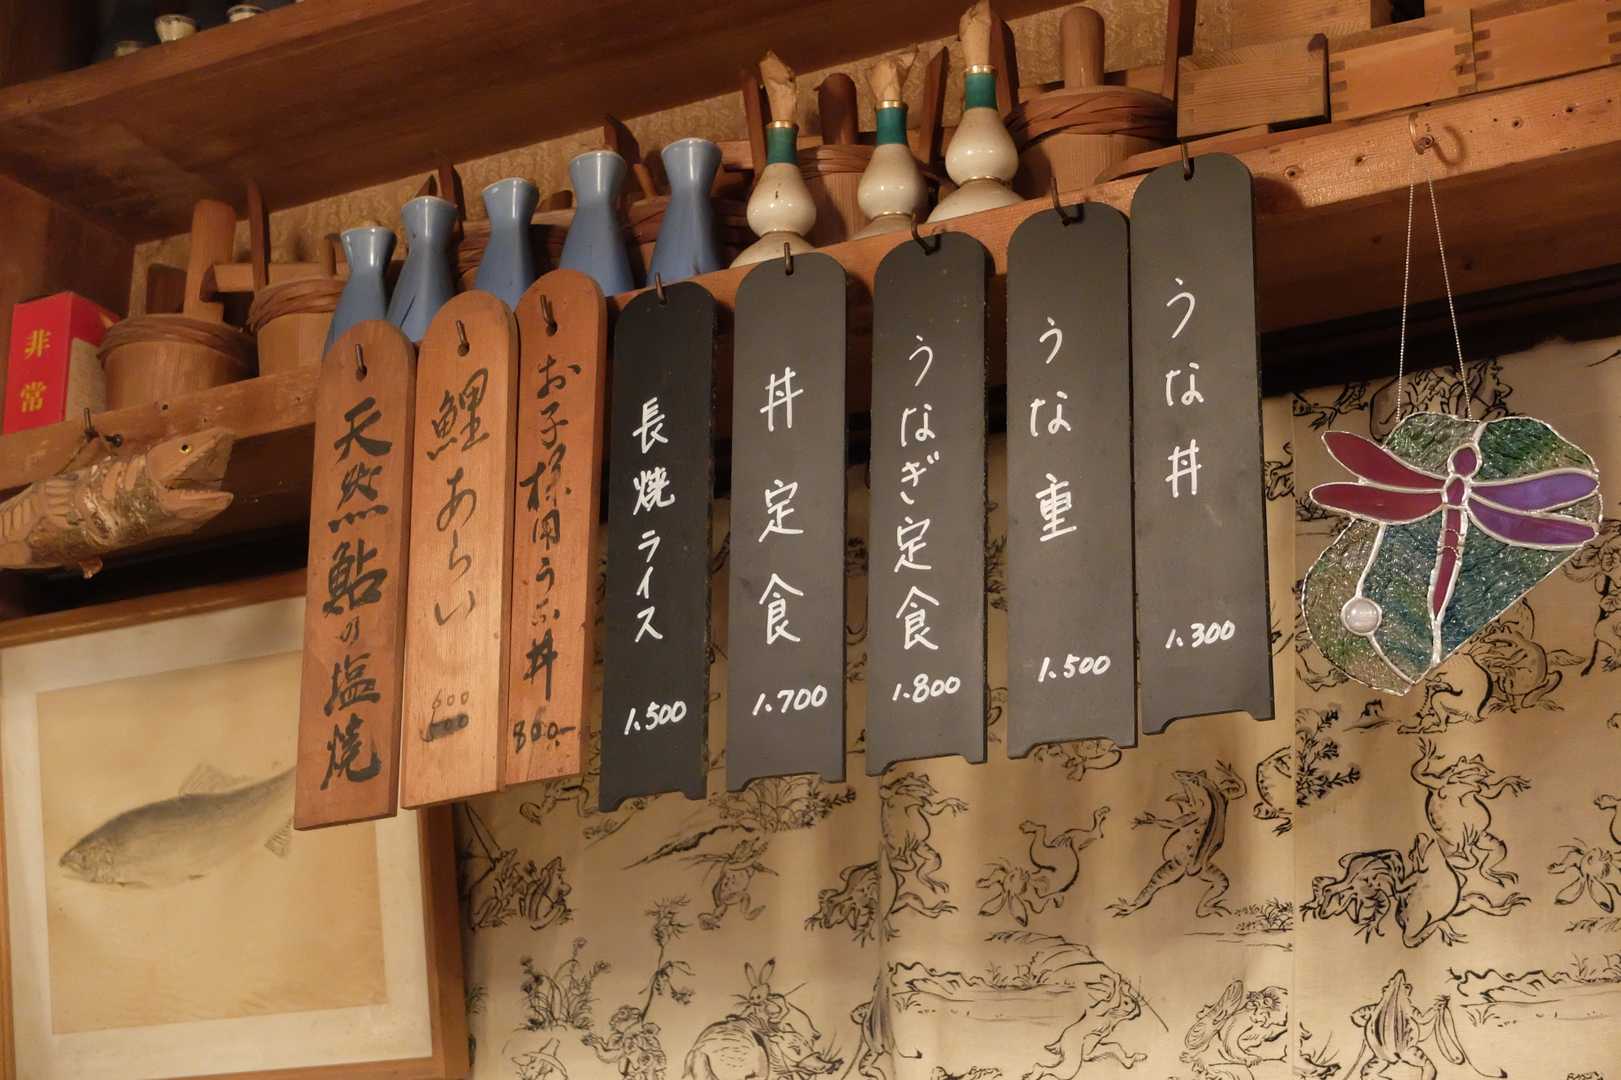 うな丼
1.300
うな重
1.500
うなぎ定食
1.800
丼定食
1.700
長焼ライス
1.500
お子様用うな丼
800-
鯉あらい
600
天然鮎の塩焼
非常